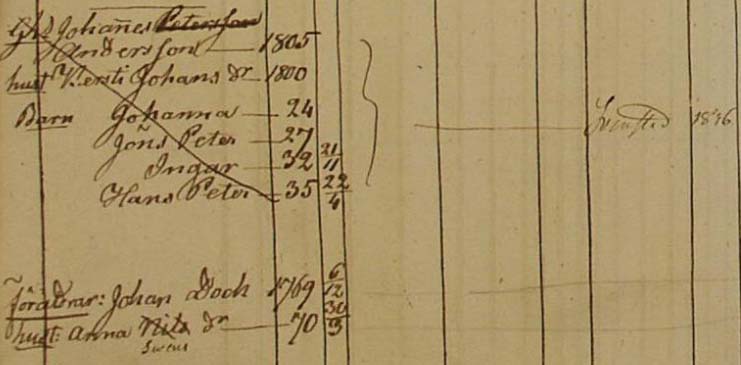 Ghd Johañes Petersson
Andersson 1805
hust Kersti Johans dr 1800
Barn Johanna 24
Jöns Peter 27
Ingar 32 21/11
Hans Peter 35 22/4
1836
Föräldrar: Johan Doch 1769 6/12
hust: Anna Nils dr 70 30/3
Svens